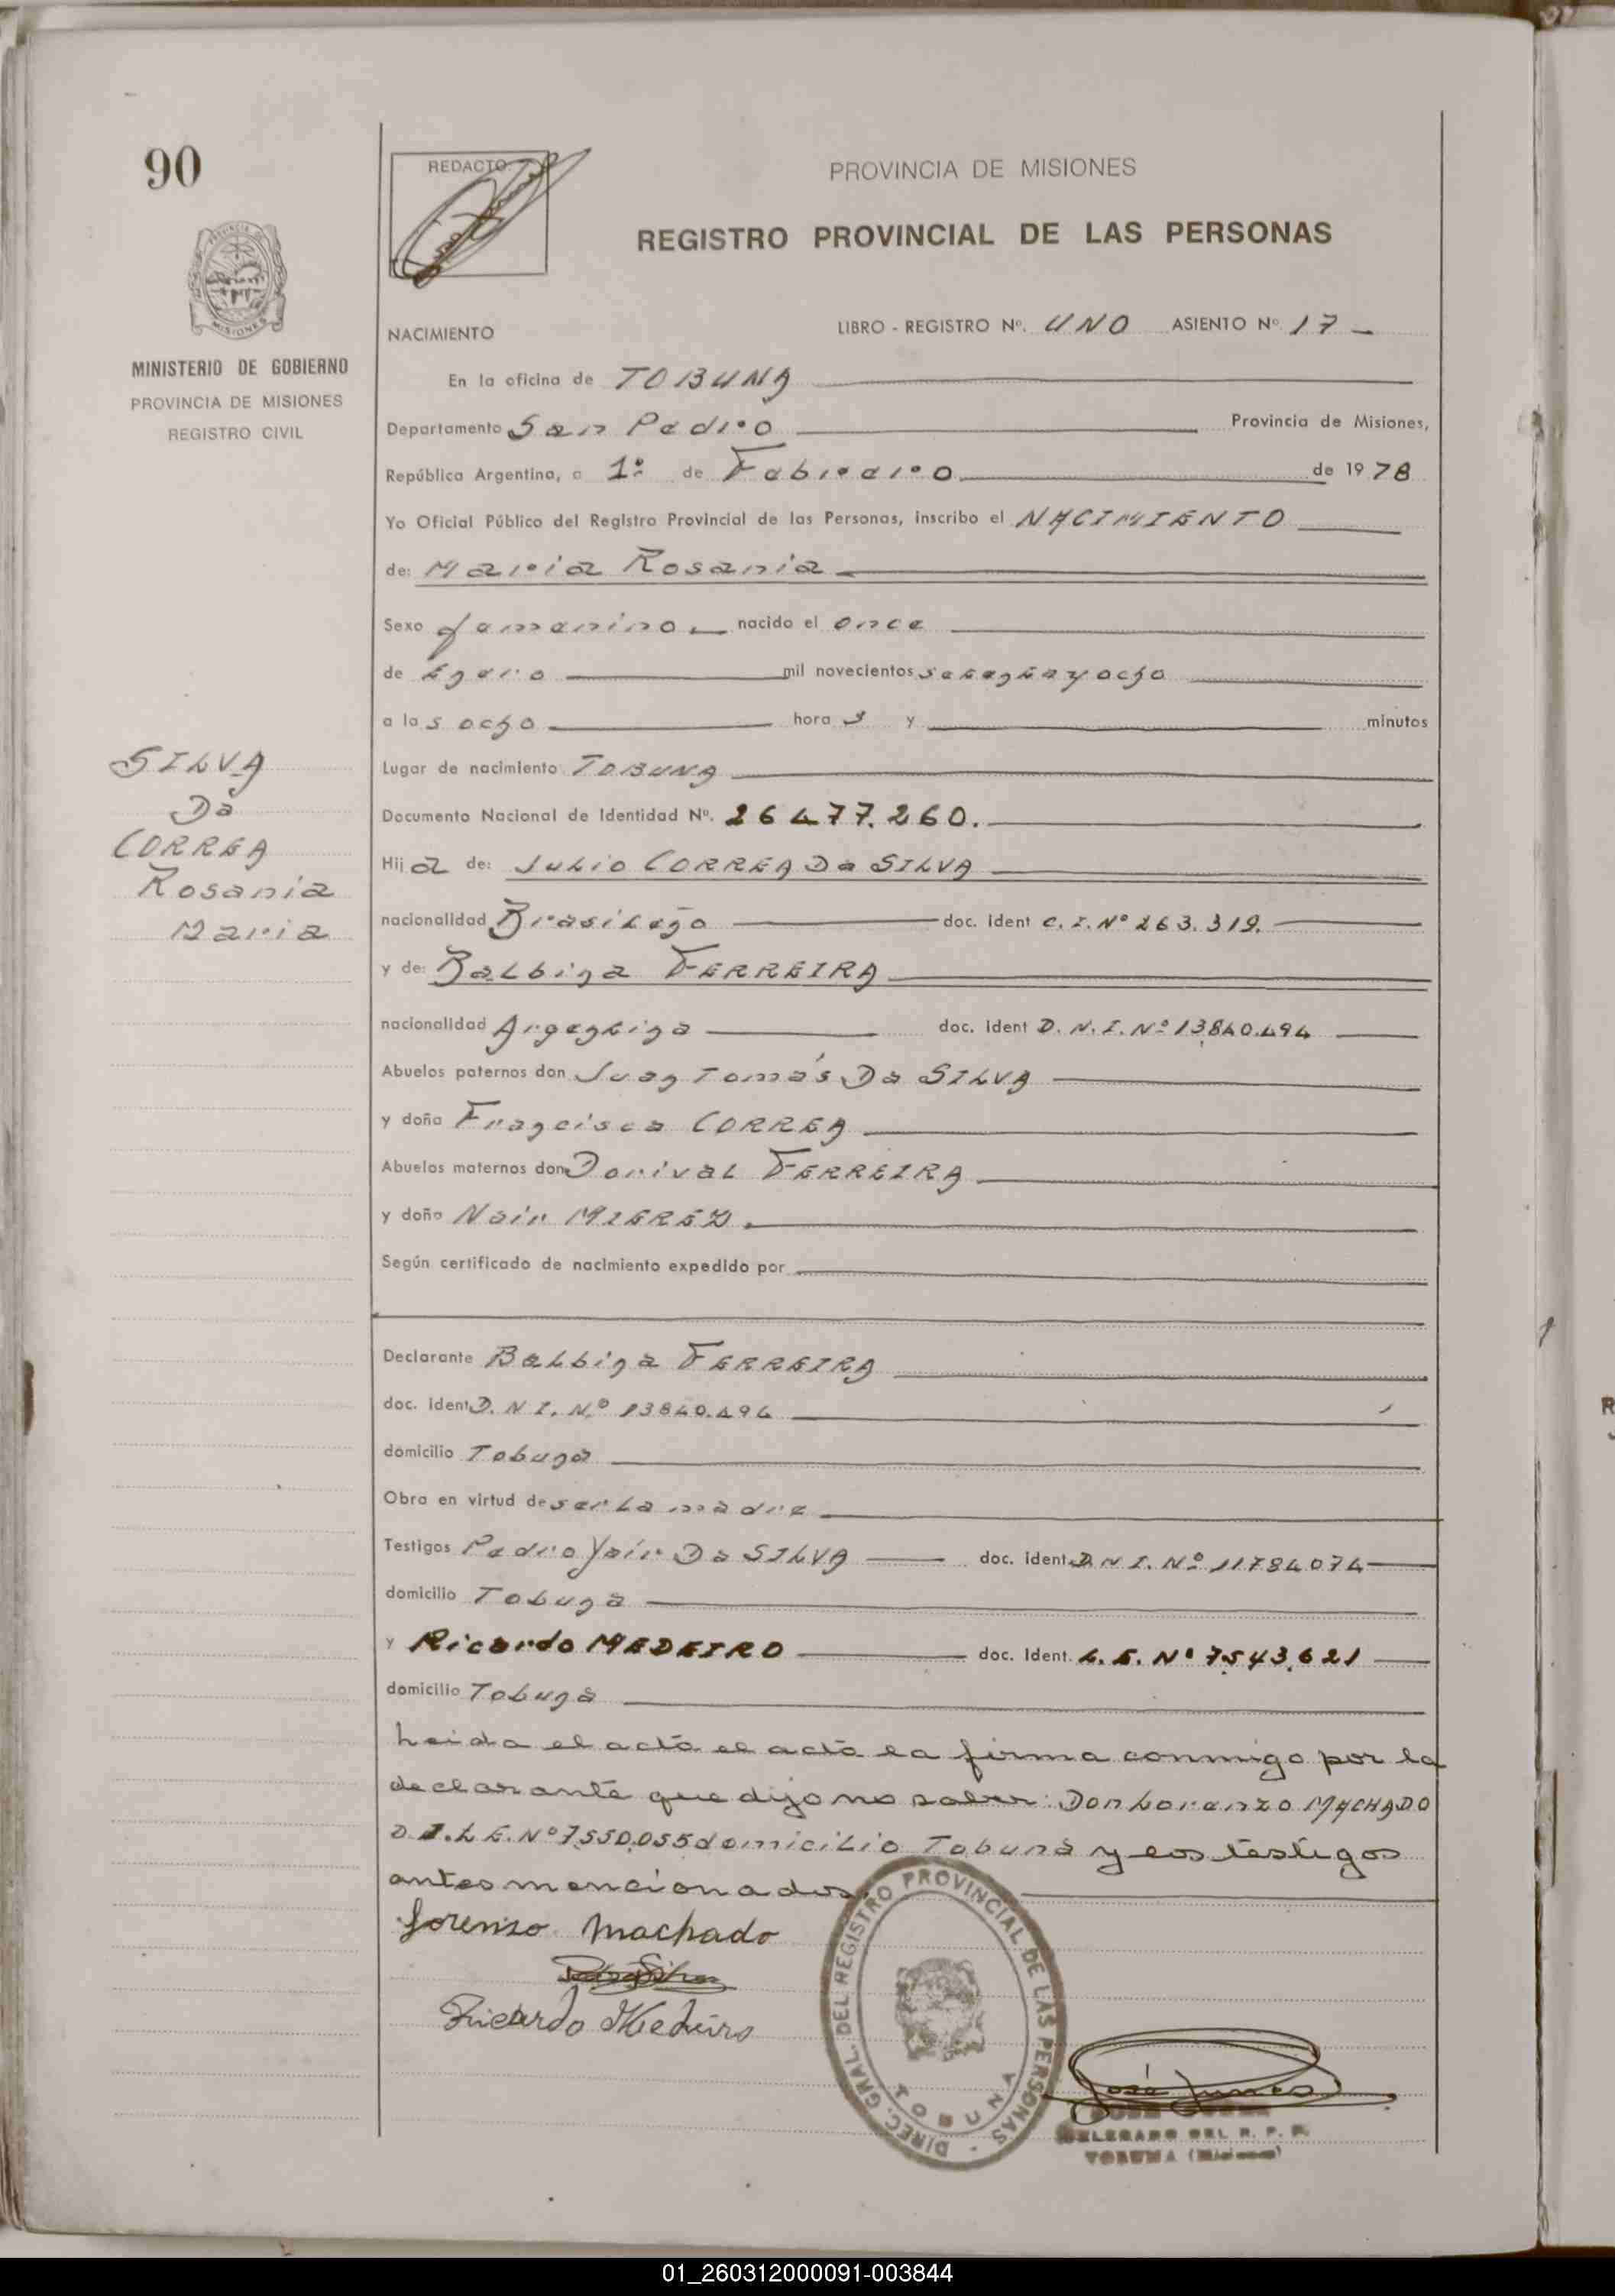 90
REDACTO:
PROVINCIA DE MISIONES
REGISTRO PROVINCIAL DE LAS PERSONAS
MISIONES
MINISTERIO DE GOBIERNO
PROVINCIA DE MISIONES
REGISTRO CIVIL
NACIMIENTO LIBRO - REGISTRO Nº. UNO ASIENTO Nº 17 -
En la oficina de TOBUNA
Departamento San Pedro Provincia de Misiones,
República Argentina, a 1º de Febrero de 1978
Yo Oficial Público del Registro Provincial de las Personas, inscribo el NACIMIENTO
de: Maria Rosania
Sexo femenino nacido el once
de Enero mil novecientos setenta y ocho
a las ocho hora s y minutos
Lugar de nacimiento TOBUNA
Documento Nacional de Identidad Nº. 26477.260.
Hija de: Julio CORREA Da SILVA
nacionalidad Brasileño doc. ident C.I.Nº 263.319.
y de: Balbina FERREIRA
nacionalidad Argentina doc. ident D.N.I.Nº 13.840.494
Abuelos paternos don Juan Tomás Da SILVA
y doña Francisca CORREA
Abuelos maternos don Dorival FERREIRA
y doña Nair MIEREZ.
Según certificado de nacimiento expedido por
SILVA
Da
CORREA
Rosania
Maria
Declarante Balbina FERREIRA
doc. ident D.N.I.N.º 13840.494
domicilio Tobuna
Obra en virtud de ser la madre
Testigos Pedro Yair Da SILVA doc. ident D.N.I.Nº 11784074
domicilio Tobuna
y Ricardo MEDEIRO doc. Ident. L.E.Nº 7.543.621
domicilio Tobuna
Leida el acta el acta la firma conmigo por la
declarante que dijo no saber: Don Lorenzo MACHADO
D.I.L.E.Nº 7.550.055 domicilio Tobuna y los testigos
antes mencionados.
Lorenso Machado
Ricardo Medeiro
DIREC. GRAL. DEL REGISTRO PROVINCIAL DE LAS PERSONAS
TOBUNA
DELEGADO DEL R. P. P.
TOBUNA (Misiones)
01_260312000091-003844